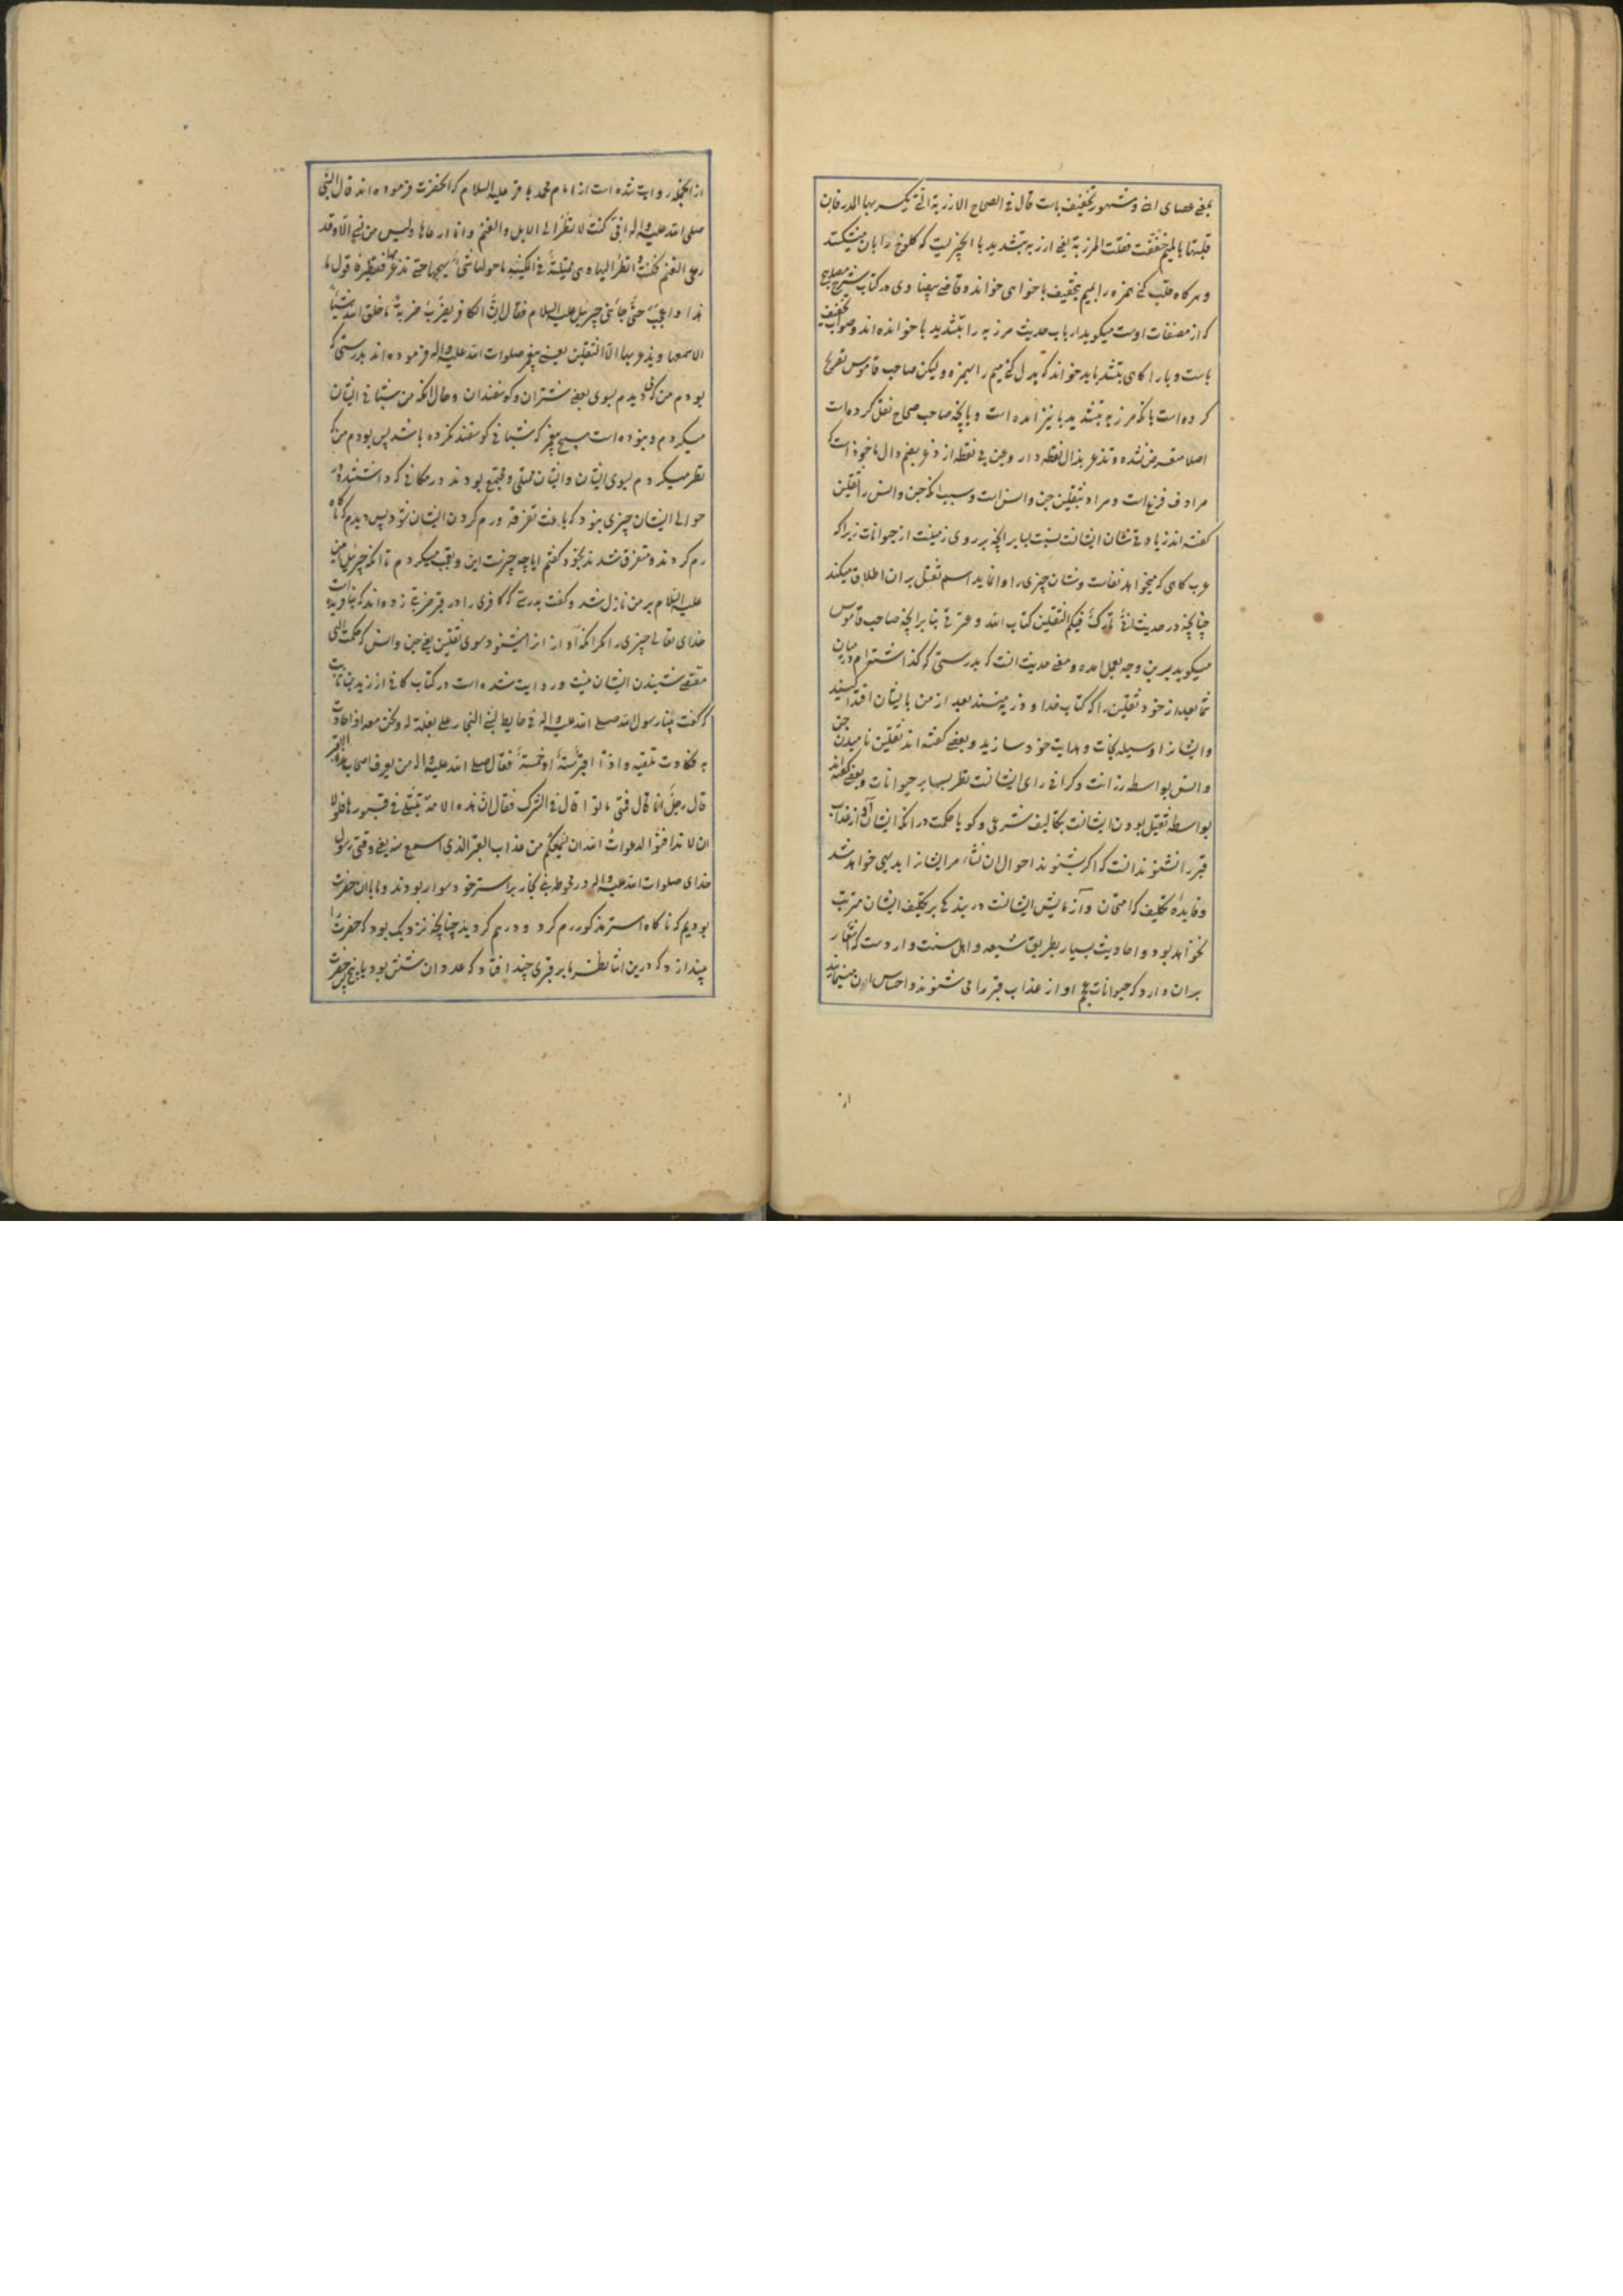 بمعنی عصای آهن و مشهور تخفیف باست قال فی الصحاح الارزبة التی یکسر بها المدر فان
قلبتها بالمیم خففت فقلت المرزبة یعنی ارزبه بتشدید با انچیزیست که کلوخ را بان میشکنند
و هر کاه قلب کنی همزه را بمیم بتخفیف با خواهی خواند و قاضی بیضاوی در کتاب شرح مصابیح
که از مصنفات اوست میکوید ارباب حدیث مرزبه را بتشدید با خوانده اند و صواب تخفیف
باست و با را کاهی بتشدید باید خواند که بدل کنی میم را بهمزه و لیکن صاحب قاموس تصریح
کرده است بانکه مرزبه بتشدید با نیز امده است و بانچه صاحب صحاح نقل کرده است
اصلا متعرض نشده و تذعر بذال نقطه دار و عین بی نقطه از ذعر بضم دال ماخوذ است که
مرادف فزع است و مراد بثقلین جن و انس است و سبب انکه جن و انس را ثقلین
کفته اند زیادتی شان ایشانست نسبت بسایر انچه بر روی زمینست از حیوانات زیرا که
عرب کاهی که میخواهد نفاست و شان چیزی را وانماید اسم ثقل بر ان اطلاق میکند
چنانچه در حدیث انی تارک فیکم الثقلین کتاب الله و عترتی بنا بر انچه صاحب قاموس
میکوید برین وجه بعمل امده و معنی حدیث انست که بدرستی که کذاشته ام در میان
شما بعد از خود ثقلین را که کتاب خدا و ذریه منند بعد از من بایشان اقتدا کنید
و ایشانرا وسیله نجات و هدایت خود سازید و بعضی کفته اند ثقلین نامیدن جن
و انس بواسطه رزانت و کرانی رای ایشانست نظر بسایر حیوانات و بعضی کفته اند
بواسطه ثقیل بودن ایشانست بتکالیف شرعی و کویا حکمت در انکه ایشان آواز عذاب
قبر را نشنوند انست که اکر بشنوند احوال ان نشاه مر ایشانرا بدیهی خواهد شد
و فایده تکلیف که امتحان و آزمایش ایشانست در بندکی بر تکلیف ایشان مترتب
نخواهد بود و احادیث بسیار بطریق شیعه و اهل سنت وارد است که اشعار
بران دارد که حیوانات عجم اواز عذاب قبر را می شنوند و احساس ان مینمایند
از
از انجمله روایت شده است از امام محمد باقر علیه السلام که انحضرت فرموده اند قال النبی
صلی الله علیه و اله انی کنت لانظر الی الابل و الغنم و انا ارعاها و لیس من نبی الا و قد
رعی الغنم فکنت انظر الیها و هی متمکنة فی المکینة ما حولها شیء یهیجها حتی تذعر فتطیر فاقول ما
هذا و اعجب حتی جاءنی جبرئیل علیه السلام فقال ان الکافر یضرب ضربة ما خلق الله شیئا
الا سمعها و یذعر بها الا الثقلین یعنی پیغمبر صلوات الله علیه و اله فرموده اند بدرستی که
بودم من که میدیدم بسوی بعضی شتران و کوسفندان و حال انکه من شبانی ایشان
میکردم و نبوده است هیچ پیغمبر که شبانی کوسفند نکرده باشد پس بودم من که
نظر میکردم بسوی ایشان و ایشان ممتلی و مجتمع بودند در مکانی که داشتند و در
حوالی ایشان چیزی نبود که باعث تفرقه و رم کردن ایشان شود پس دیدم که ناکاه
رم کردند و متفرق شدند بخود کفتم ایا چه چیزست این و تعجب میکردم تا انکه جبرئیل امین
علیه السلام بر من نازل شد و کفت بدرستی که کافری را در قبر ضربتی زده اند که نیافریده است
خدای تعالی چیزی را مکر انکه آواز انرا میشنود سوی ثقلین یعنی جن و انس که حکمت الهی
مقتضی شنیدن ایشان نیست و روایت شده است در کتاب کافی از زید بن ثابت
که کفت بینا رسول الله صلی الله علیه و اله فی حایط لبنی النجار علی بغلة له و نحن معه اذ حادت
به فکادت تلقیه و اذا اقبر ستة او خمسة فقال صلی الله علیه و اله من یعرف اصحاب هذه الاقبر
قال رجل انا قال فمتی ماتوا قال فی الشرک فقال ان هذه الامة تبتلی فی قبورها فلولا
ان لا تدافنوا لدعوت الله ان یسمعکم من عذاب القبر الذی اسمع منه یعنی وقتی رسول
خدای صلوات الله علیه و اله در محوطه بنی نجار بر استر خود سوار بودند و ما با ان حضرت
بودیم که ناکاه استر مذکور رم کرد و درهم کردید چنانچه نزدیک بود که حضرت را
بیندازد که درین اثنا نظر ما بر قبری چند افتاد که عدد ان شش بود یا پنج حضرت